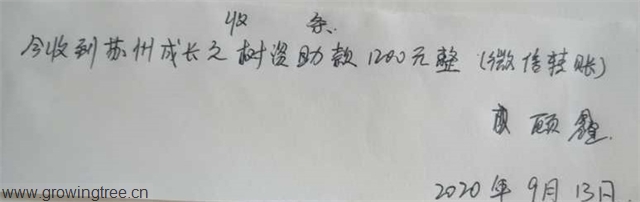 收 条
今收到苏州成长之树资助款1200元整（微信转账）
顾鑫
2020年9月13日.
www.growingtree.cn